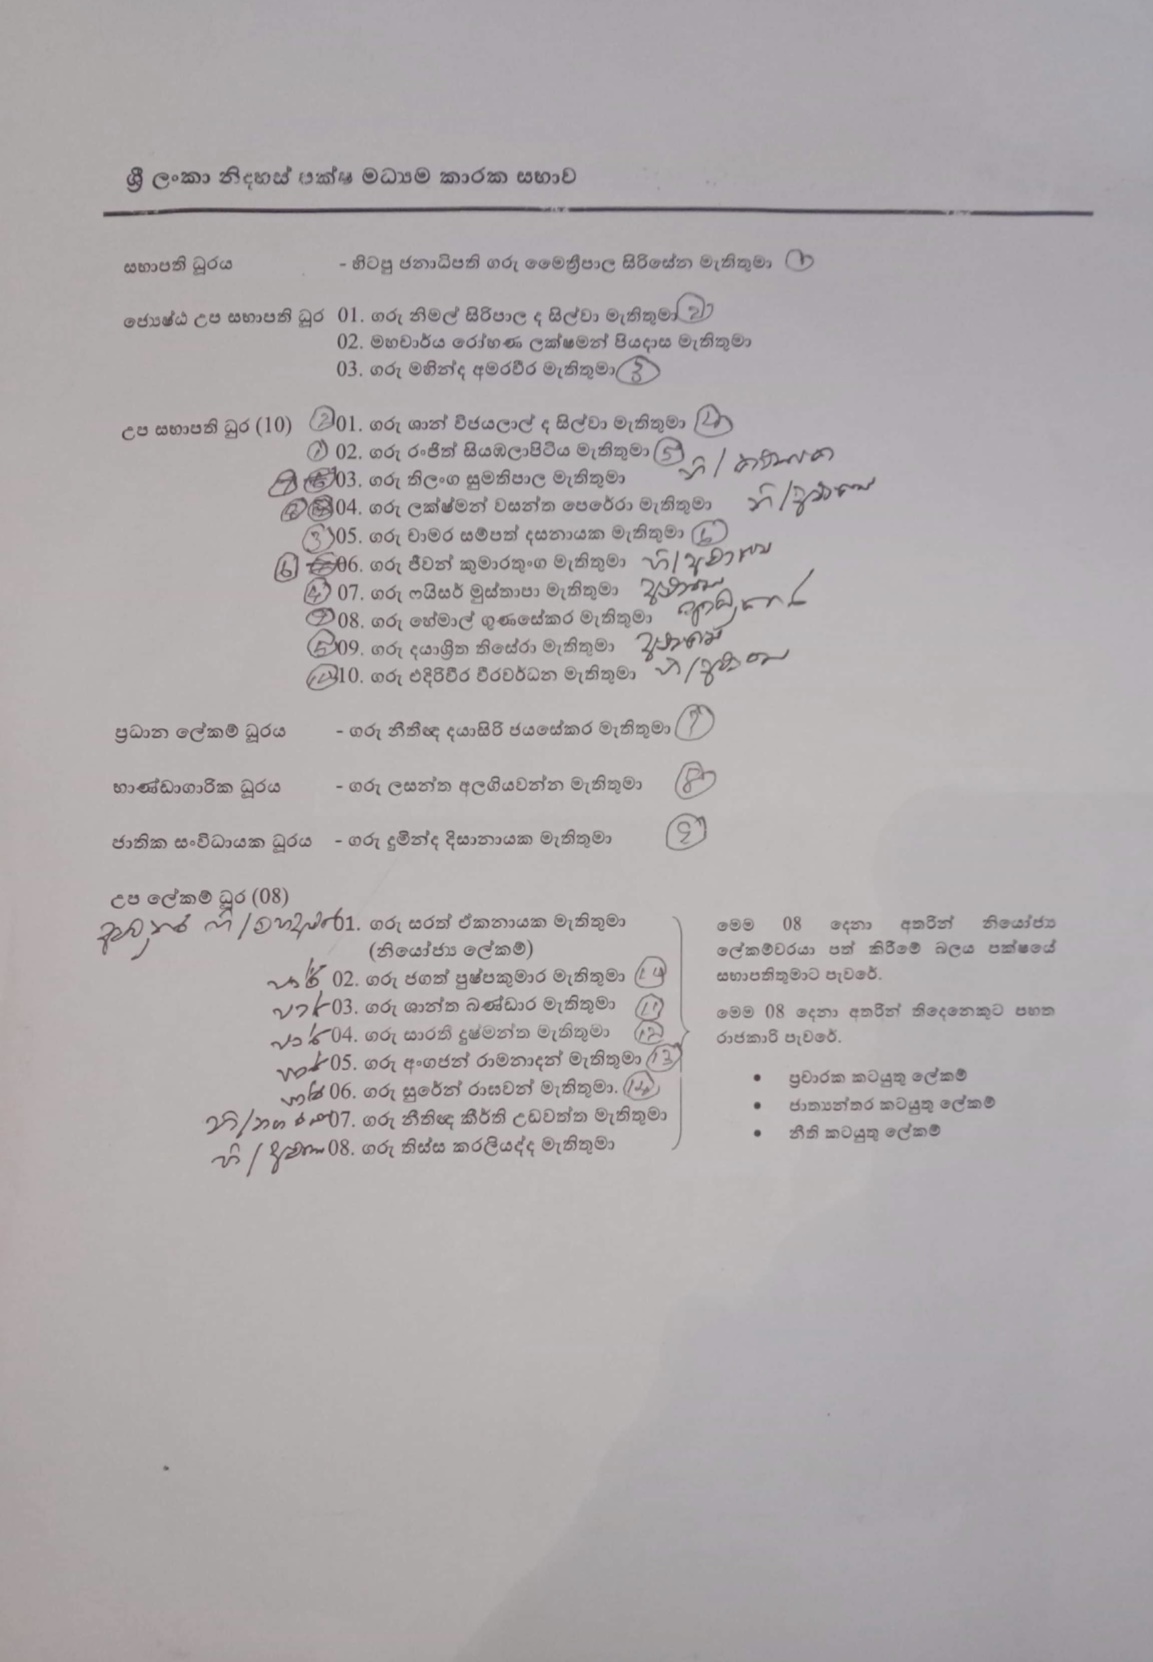 ශ්‍රී ලංකා නිදහස් පක්ෂ මධ්‍යම කාරක සභාව
සභාපති ධූරය - හිටපු ජනාධිපති ගරු මෛත්‍රීපාල සිරිසේන මැතිතුමා 1
ජ්‍යෙෂ්ඨ උප සභාපති ධූර 01. ගරු නිමල් සිරිපාල ද සිල්වා මැතිතුමා 2
02. මහචාර්ය රෝහණ ලක්ෂමන් පියදාස මැතිතුමා
03. ගරු මහින්ද අමරවීර මැතිතුමා 3
උප සභාපති ධුර (10) 2 01. ගරු ශාන් විජයලාල් ද සිල්වා මැතිතුමා 4
1 02. ගරු රංජිත් සියඹලාපිටිය මැතිතුමා 5
03. ගරු තිලංග සුමතිපාල මැතිතුමා නි /
04. ගරු ලක්ෂ්මන් වසන්ත පෙරේරා මැතිතුමා නි /
3 05. ගරු චාමර සම්පත් දසනායක මැතිතුමා 6
6 06. ගරු ජීවන් කුමාරතුංග මැතිතුමා
4 07. ගරු ෆයිසර් මුස්තාපා මැතිතුමා
7 08. ගරු හේමාල් ගුණසේකර මැතිතුමා
5 09. ගරු දයාශ්‍රිත තිසේරා මැතිතුමා
10 10. ගරු එදිරිවීර වීරවර්ධන මැතිතුමා
ප්‍රධාන ලේකම් ධූරය - ගරු නීතීඥ දයාසිරි ජයසේකර මැතිතුමා 7
භාණ්ඩාගාරික ධූරය - ගරු ලසන්ත අලගියවන්න මැතිතුමා 8
ජාතික සංවිධායක ධූරය - ගරු දුමින්ද දිසානායක මැතිතුමා 9
උප ලේකම් ධූර (08)
01. ගරු සරත් ඒකනායක මැතිතුමා
(නියෝජ්‍ය ලේකම්)
පාර් 02. ගරු ජගත් පුෂ්පකුමාර මැතිතුමා
පාර් 03. ගරු ශාන්ත බණ්ඩාර මැතිතුමා 11
පාර් 04. ගරු සාරතී දුෂ්මන්ත මැතිතුමා 12
පාර් 05. ගරු අංගජන් රාමනාදන් මැතිතුමා 13
පාර් 06. ගරු සුරේන් රාඝවන් මැතිතුමා. 14
07. ගරු නීතිඥ කීර්ති උඩවත්ත මැතිතුමා
08. ගරු තිස්ස කරලියද්ද මැතිතුමා
මෙම 08 දෙනා අතරින් නියෝජ්‍ය
ලේකම්වරයා පත් කිරීමේ බලය පක්ෂයේ
සභාපතිතුමාට පැවරේ.
මෙම 08 දෙනා අතරින් තිදෙනෙකුට පහත
රාජකාරි පැවරේ.
• ප්‍රචාරක කටයුතු ලේකම්
• ජාත්‍යන්තර කටයුතු ලේකම්
• නීති කටයුතු ලේකම්